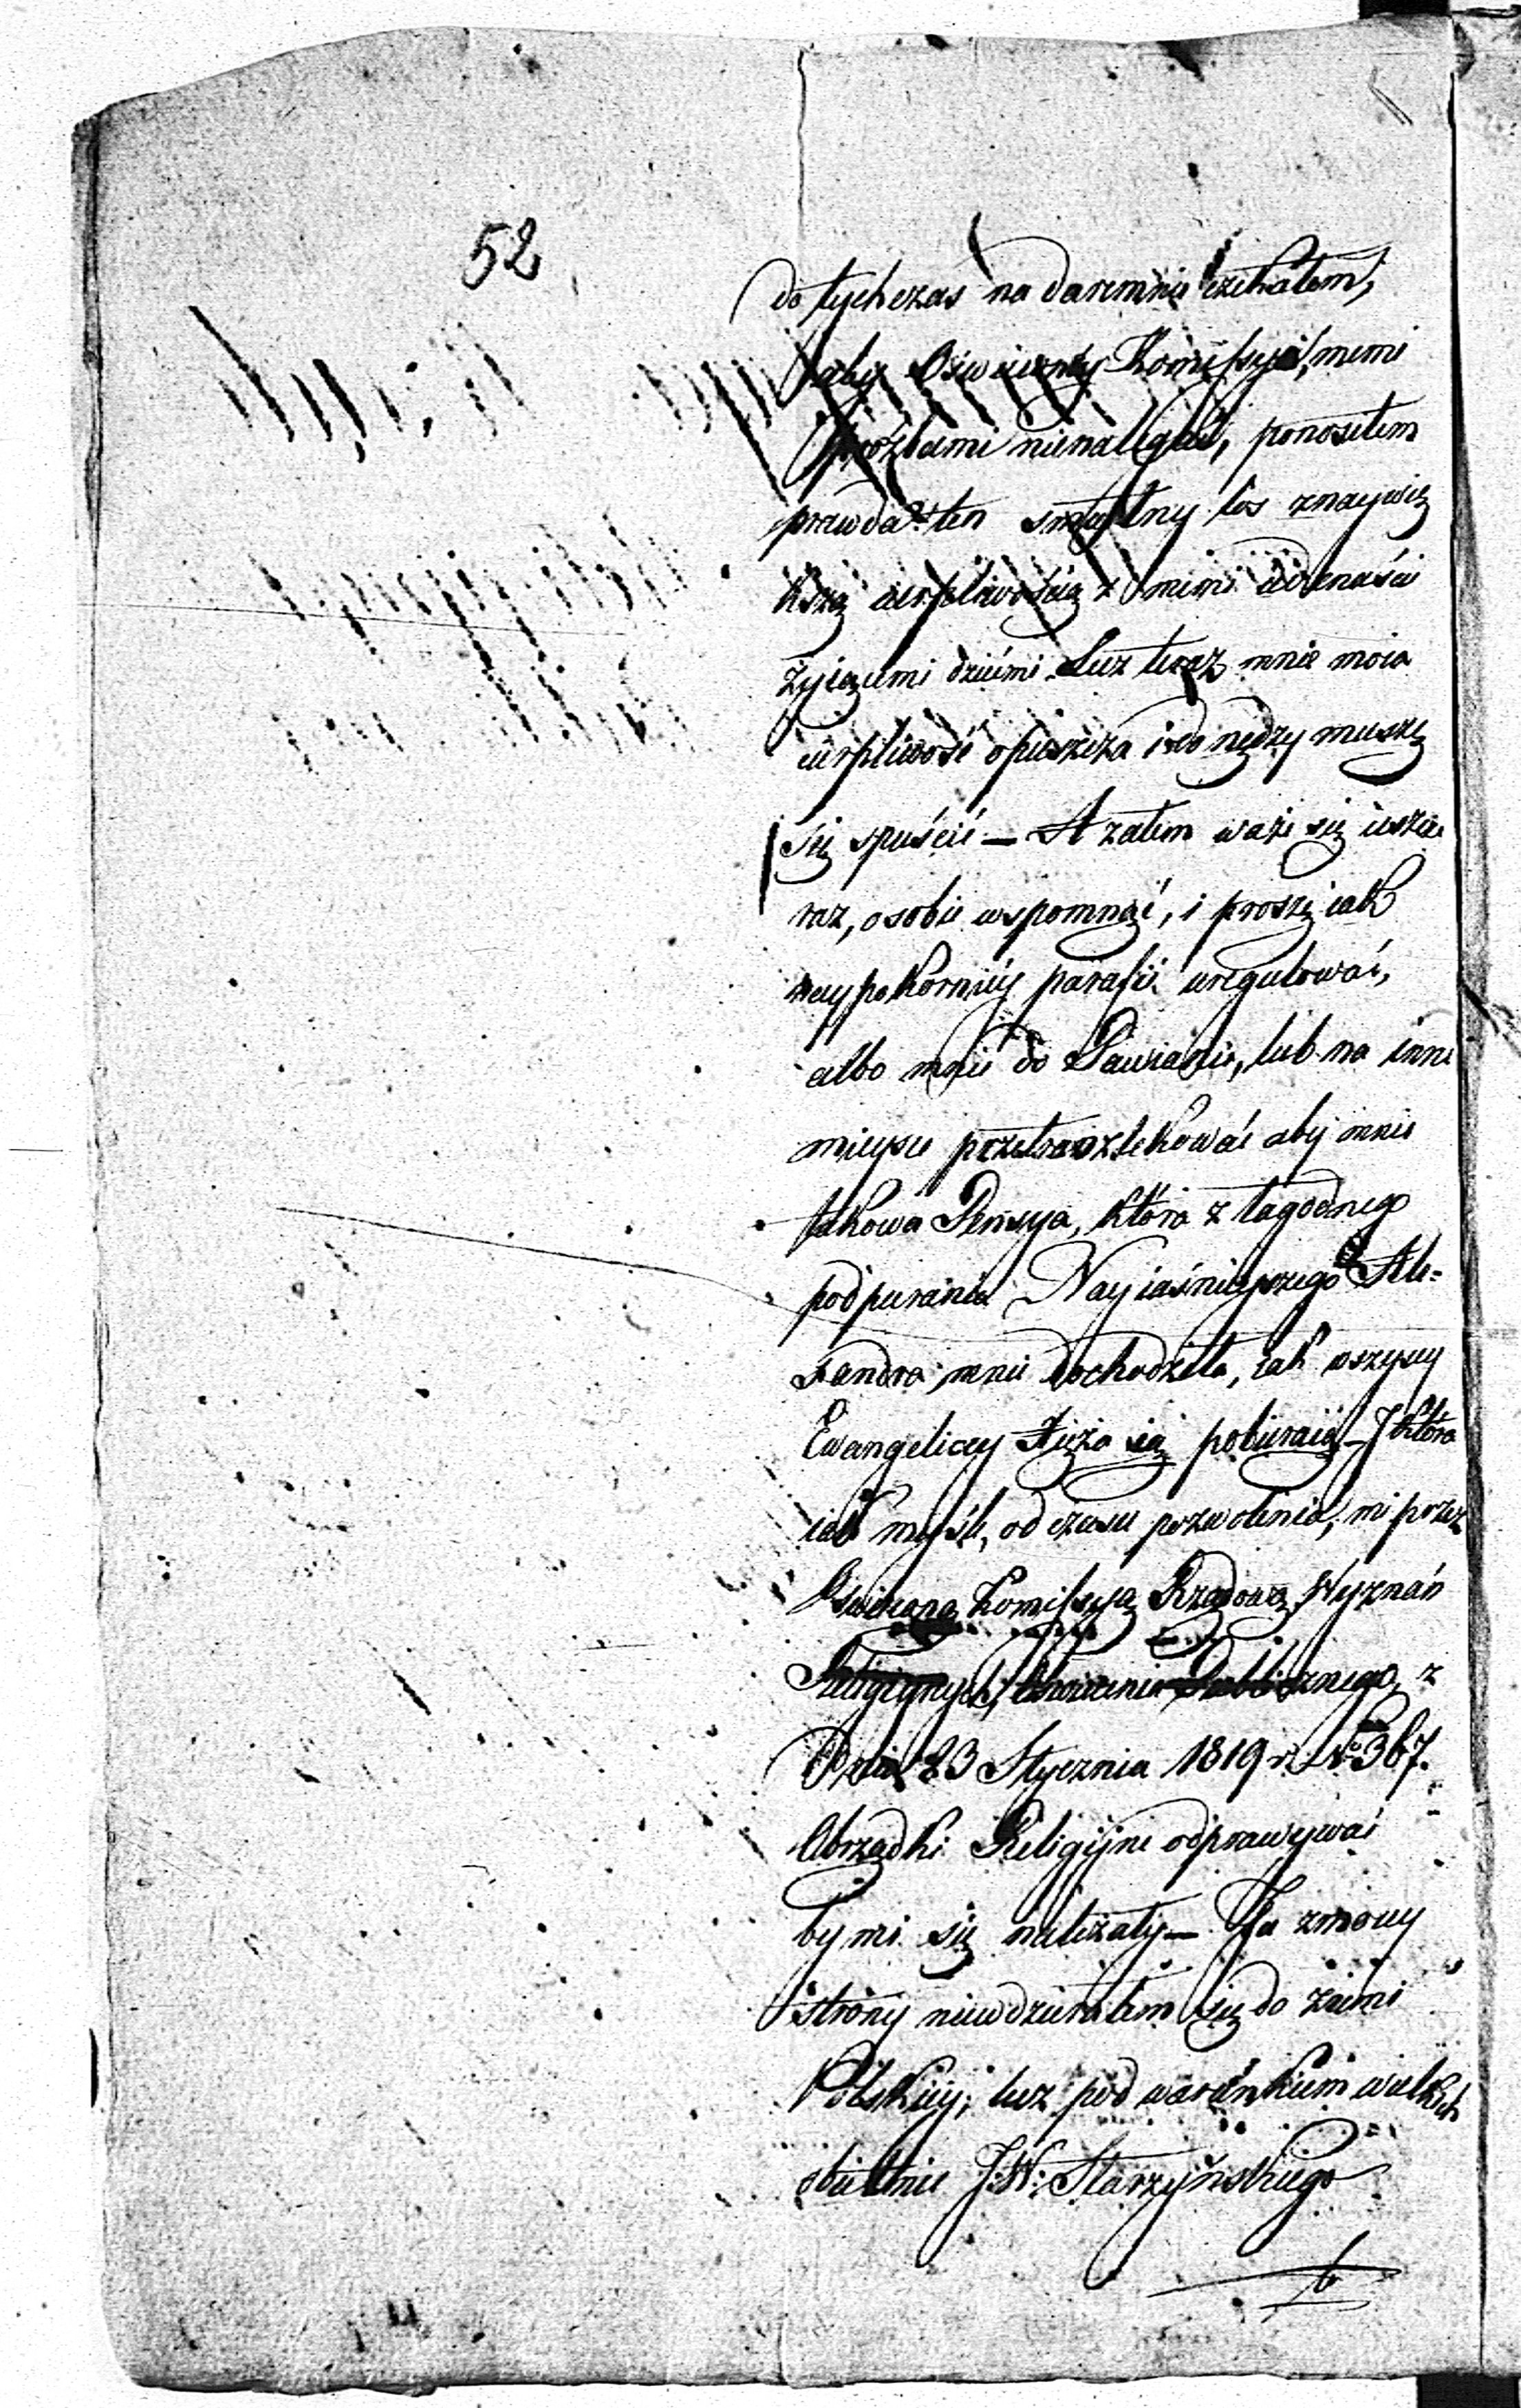 52
do tychczas na daremnie czekałem,
aby Oświeconey Komissyi, memi
prożbami nienalegał, ponosełem
prawda ten smutny los znaywię
kszą cierpliwoscią z memi
żyiącemi dziećmi. Lecz teraz mnie moia
cierpliwość opuszcza i do nędzy muszę
się spuścić — A zatem waże się ieszcze
raz, osobie wspomnąć, i proszę iak
naypokorniéy parafii uregulować,
albo mnie do Pawianic, lub na inne
mieysce przetranzlekować aby mnie
takowa Pensya, która z łagodnego
podpierania Nayiaśnieyszego Ale=
xandra mnie dochodzeła, iak wszyscy
Ewangeliccy Xięża ią pobieraią — J która
iak myśle, od czasu pozwolenia, mi przez
Oswieconą Komissyą Rządową Wyznań
Religiynych, Publicznego, z
Dnia 23 Stycznia 1819 r. No 367.
Obrządki Religijne odprawywać
by mi się należały — Ja zmoiey
strony niewdzierałem się do ziemi
Polskiéy, lecz pod warunkiem wielkich
obietnic J: W: Starzyńskiego